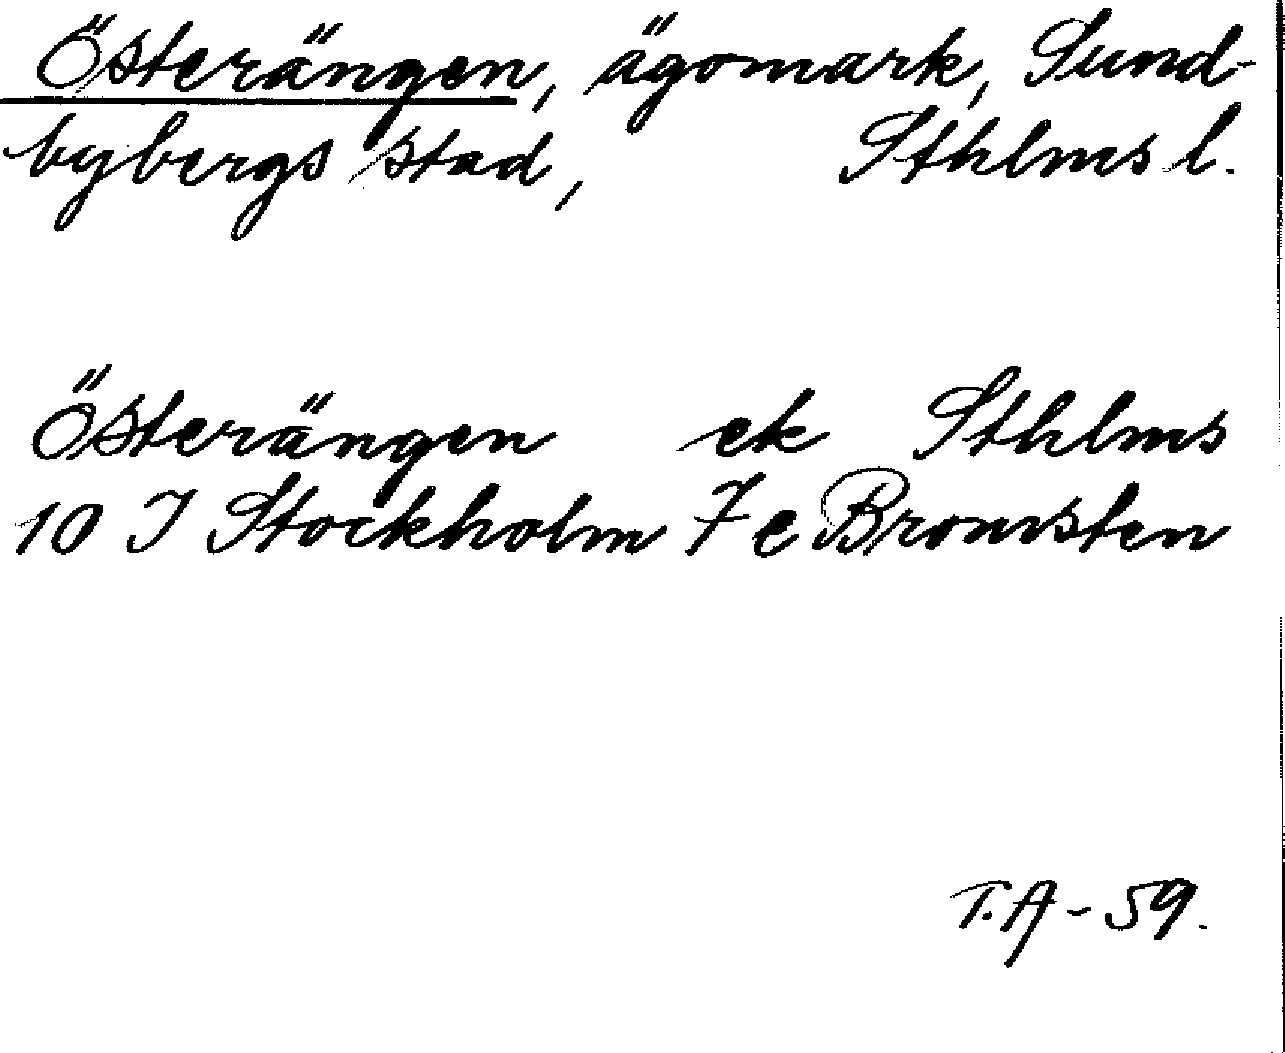 Österängen, ägomark, Sund-
bybergs stad, Sthlms l.
Österängen ek Sthlms
10 I Stockholm 7 e Bromsten
T.A-59.